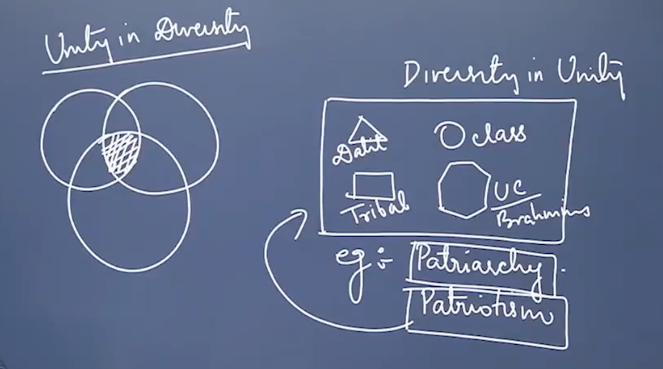 Unity in Diversity
Diversity in Unity
Dalit
class
Tribal
UC
Brahmins
eg :-
Patriarchy.
Patriotism